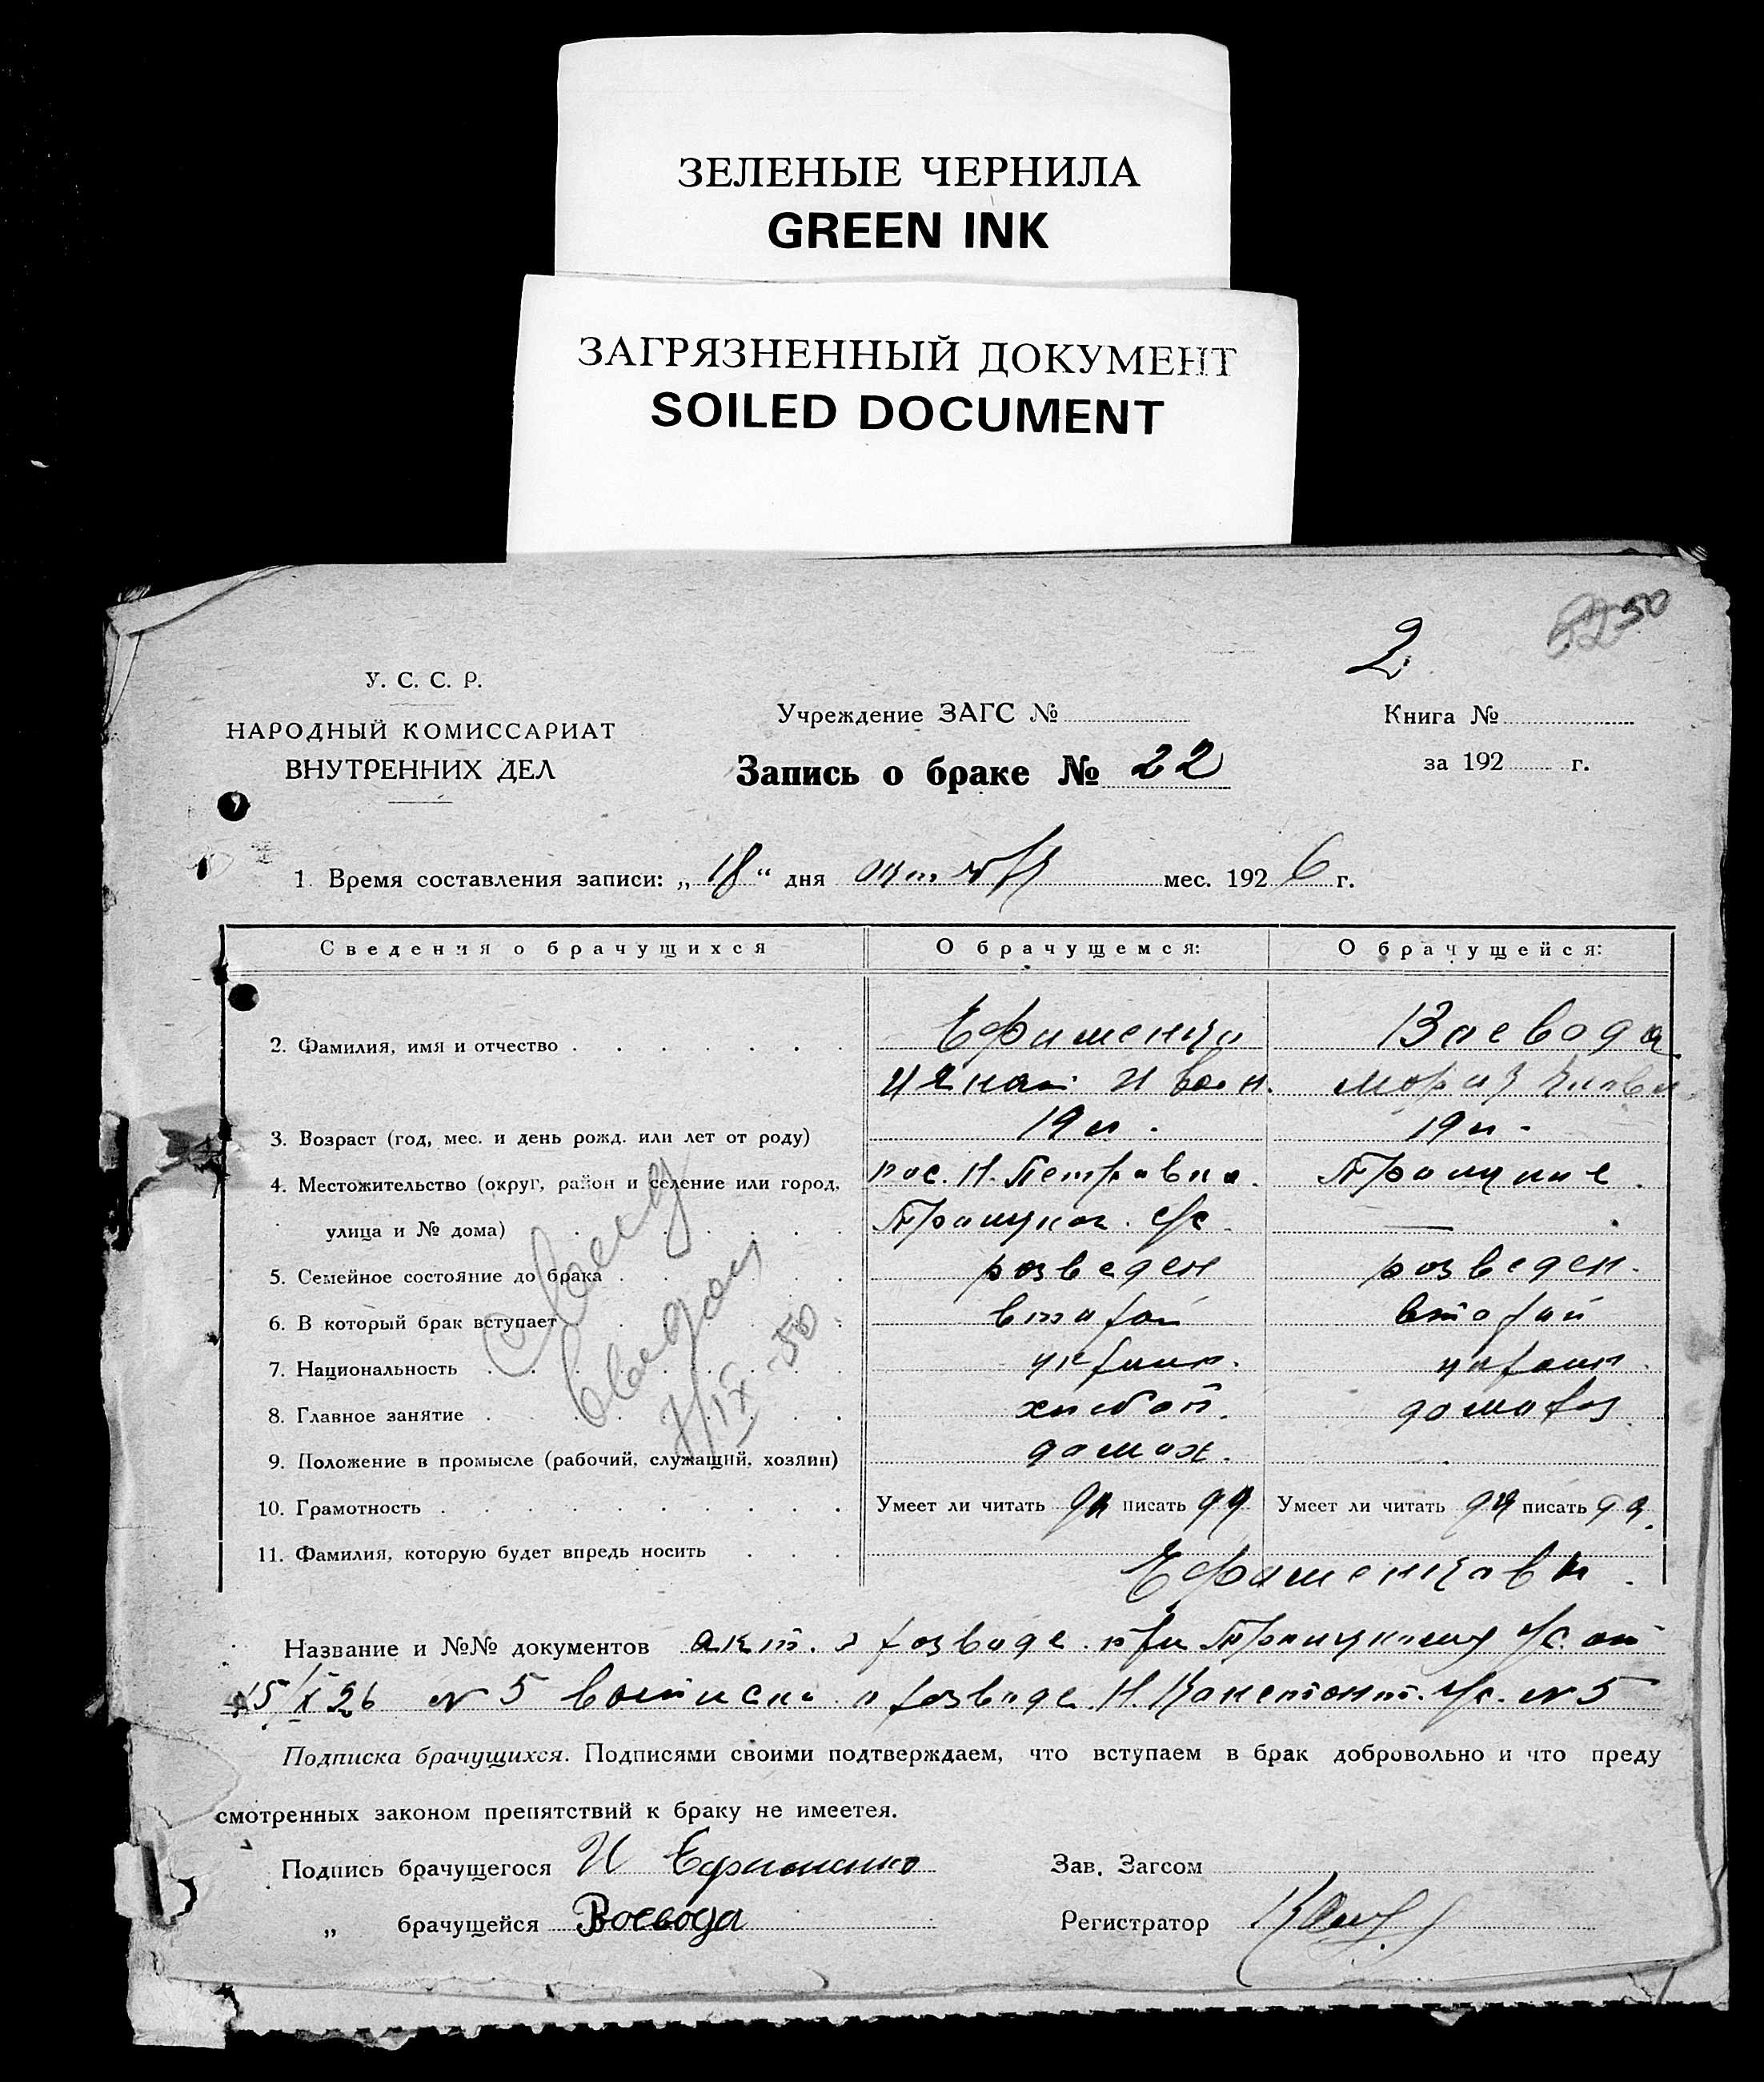 ЗЕЛЕНЫЕ ЧЕРНИЛА
GREEN INK
ЗАГРЯЗНЕННЫЙ ДОКУМЕНТ
SOILED DOCUMENT
2.
50
У. С. С. Р.
НАРОДНЫЙ КОМИССАРИАТ
ВНУТРЕННИХ ДЕЛ
Учреждение ЗАГС №
Книга №
Запись о браке № 22
за 192 г.
1. Время составления записи: „18“ дня мес. 1926 г.
Сведения о брачущихся О брачущемся: О брачущейся:
2. Фамилия, имя и отчество Ефименко Воевода
Игнат Иван.
3. Возраст (год, мес. и день рожд. или лет от роду) 19 л. 19 л.
4. Местожительство (округ, район и селение или город, пос. Н. Петровка. Троицкое.
улица и № дома) Троицког. с/с —
5. Семейное состояние до брака розведен розведен.
6. В который брак вступает второй второй
7. Национальность украин. украин.
8. Главное занятие хлебоп. домохоз
9. Положение в промысле (рабочий, служащий, хозяин) домох.
10. Грамотность Умеет ли читать да писать да Умеет ли читать да писать да.
11. Фамилия, которую будет впредь носить
Название и №№ документов акт. о розводе при Троицком с/с. от
15/X 26 № 5 о розводе Н. с/с. № 5
Подписка брачущихся. Подписями своими подтверждаем, что вступаем в брак добровольно и что преду
смотренных законом препятствий к браку не имеетея.
Подпись брачущегося И Ефименко Зав. Загсом
„ брачущейся Воевода Регистратор
7/IX-50